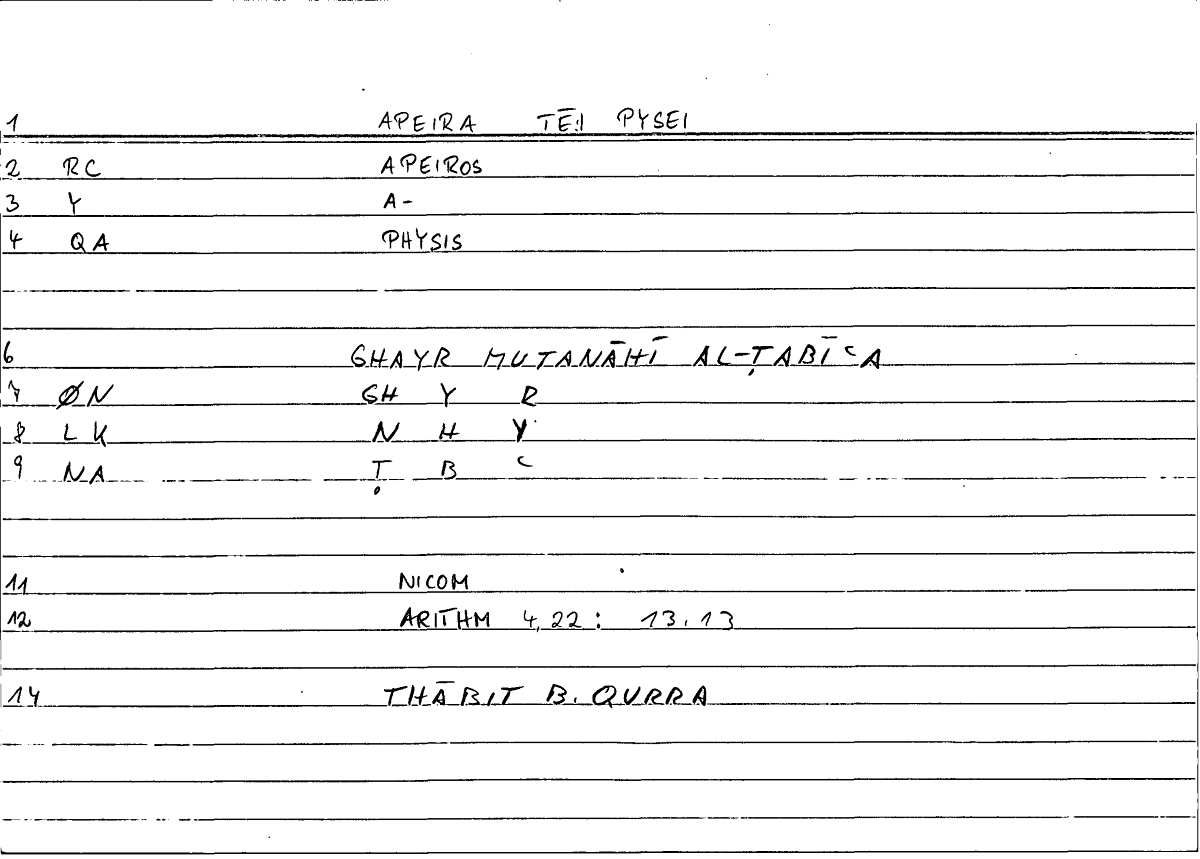 1 APEIRA TĒ:I PYSEI
2 RC APEIROS
3 Y A-
4 QA PHYSIS
6 GHAYR MUTANĀHĪ AL-ṬABĪʿA
7 ØN GH Y R
8 LK N H Y
9 NA Ṭ B ʿ
11 NICOM
12 ARITHM 4,22: 13.13
14 THĀBIT B. QURRA